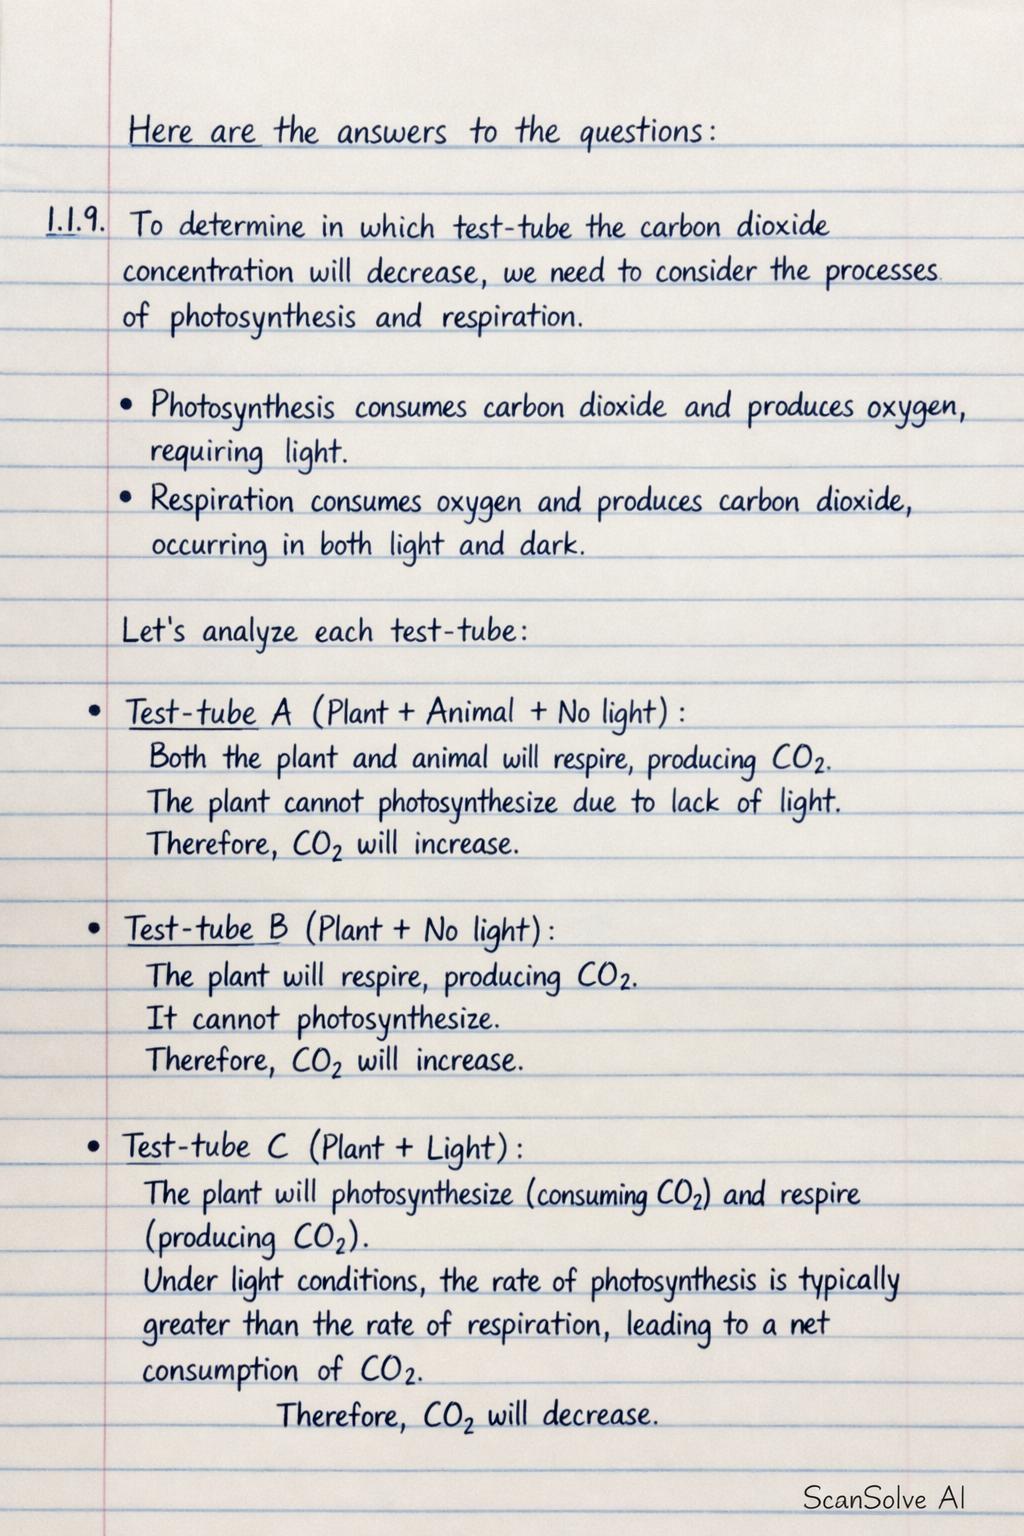 Here are the answers to the questions:
1.1.9. To determine in which test-tube the carbon dioxide
concentration will decrease, we need to consider the processes
of photosynthesis and respiration.
• Photosynthesis consumes carbon dioxide and produces oxygen,
requiring light.
• Respiration consumes oxygen and produces carbon dioxide,
occurring in both light and dark.
Let's analyze each test-tube:
• Test-tube A (Plant + Animal + No light):
Both the plant and animal will respire, producing CO₂.
The plant cannot photosynthesize due to lack of light.
Therefore, CO₂ will increase.
• Test-tube B (Plant + No light):
The plant will respire, producing CO₂.
It cannot photosynthesize.
Therefore, CO₂ will increase.
• Test-tube C (Plant + Light):
The plant will photosynthesize (consuming CO₂) and respire
(producing CO₂).
Under light conditions, the rate of photosynthesis is typically
greater than the rate of respiration, leading to a net
consumption of CO₂.
Therefore, CO₂ will decrease.
ScanSolve AI